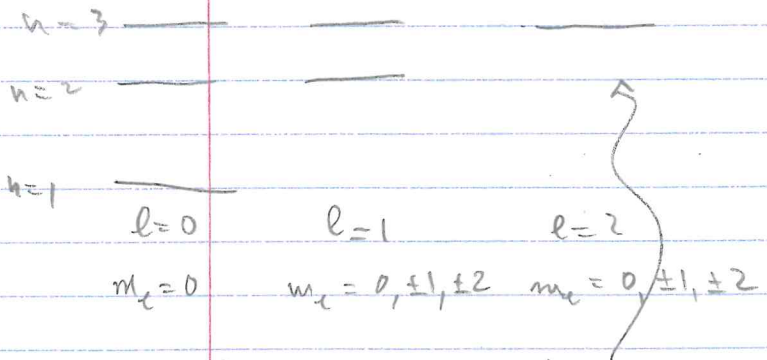 n = 3
n = 2
n = 1
l = 0 l = 1 l = 2
m_l = 0 m_l = 0, ±1, ±2 m_l = 0, ±1, ±2